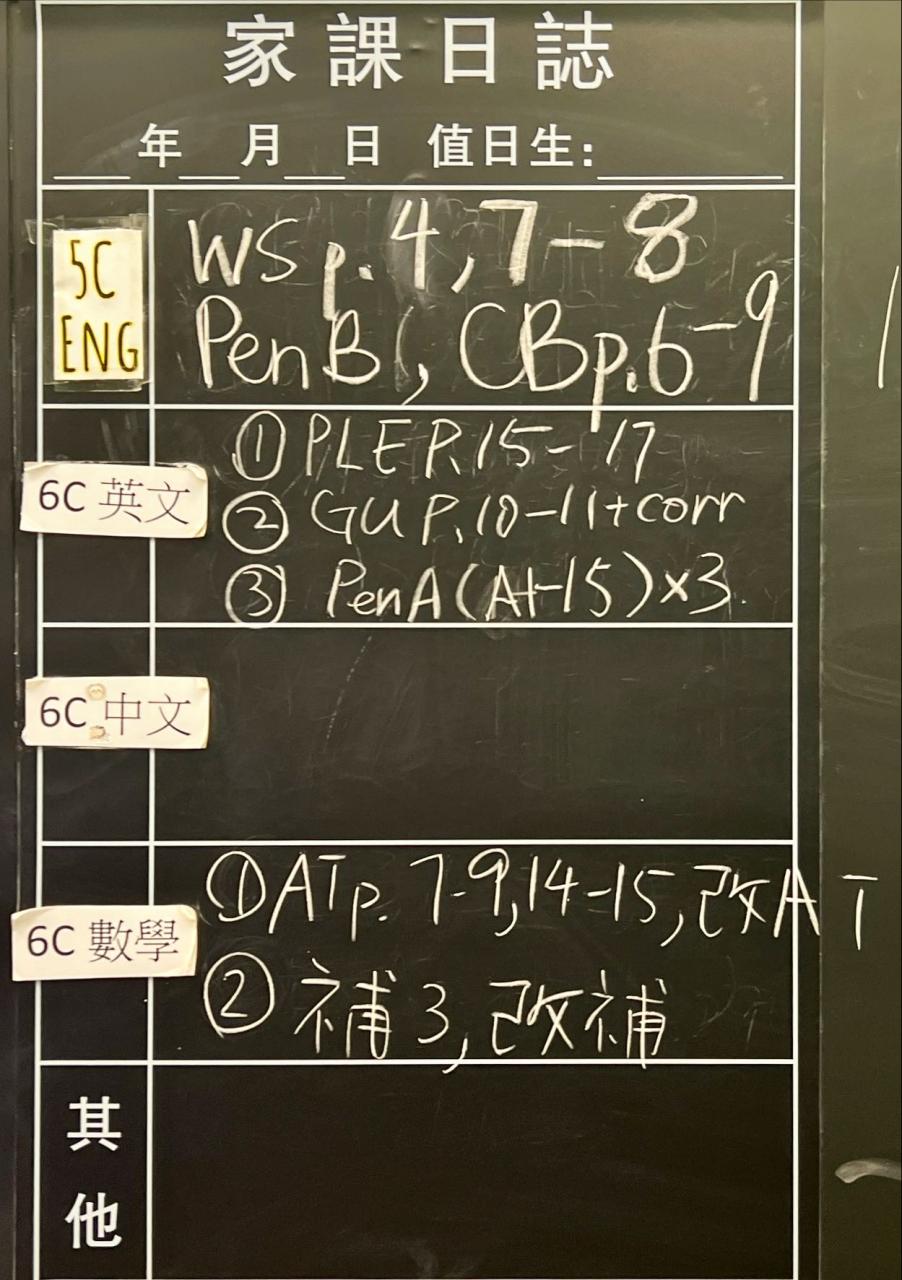 家課日誌
___年___月___日 值日生:________
5C
ENG
WS p. 4, 7-8
Pen B, CB p.6-9
6C 英文
① PLE P.15-17
② GU P.10-11+corr
③ Pen A (A1-15)x3.
6C 中文
6C 數學
① AT p. 7-9, 14-15, 改AT
② 補3, 改補
其他